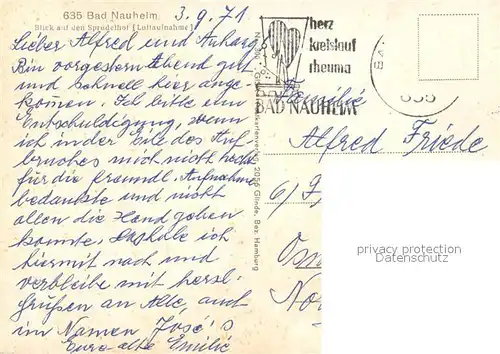 635 Bad Nauheim
Blick auf den Sprudelhof [Luftaufnahme]
3.9.71
Lieber Alfred und Anhang
Bin vorgestern Abend gut
und schnell hier ange-
kommen. Ich bitte um
Entschuldigung, wenn
ich in der Eile des Auf-
bruches mich nicht
für die freundl. Aufnahme
bedankte und nicht
allen die Hand geben
konnte. Ich
hiermit nach und
verbleibe mit herzl.
Grüßen an Alle, auch
im Namen José's
Eure alte Emilie
herz
kreislauf
rheuma
BAD NAUHEIM
635
Familie
Alfred Friede
2056 Glinde, Bez. Hamburg
privacy protection
Datenschutz